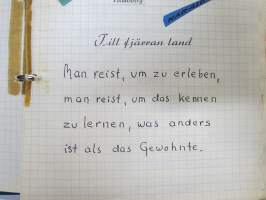 Till fjärran land
Man reist, um zu erleben,
man reist, um das kennen
zu lernen, was anders
ist als das Gewohnte.